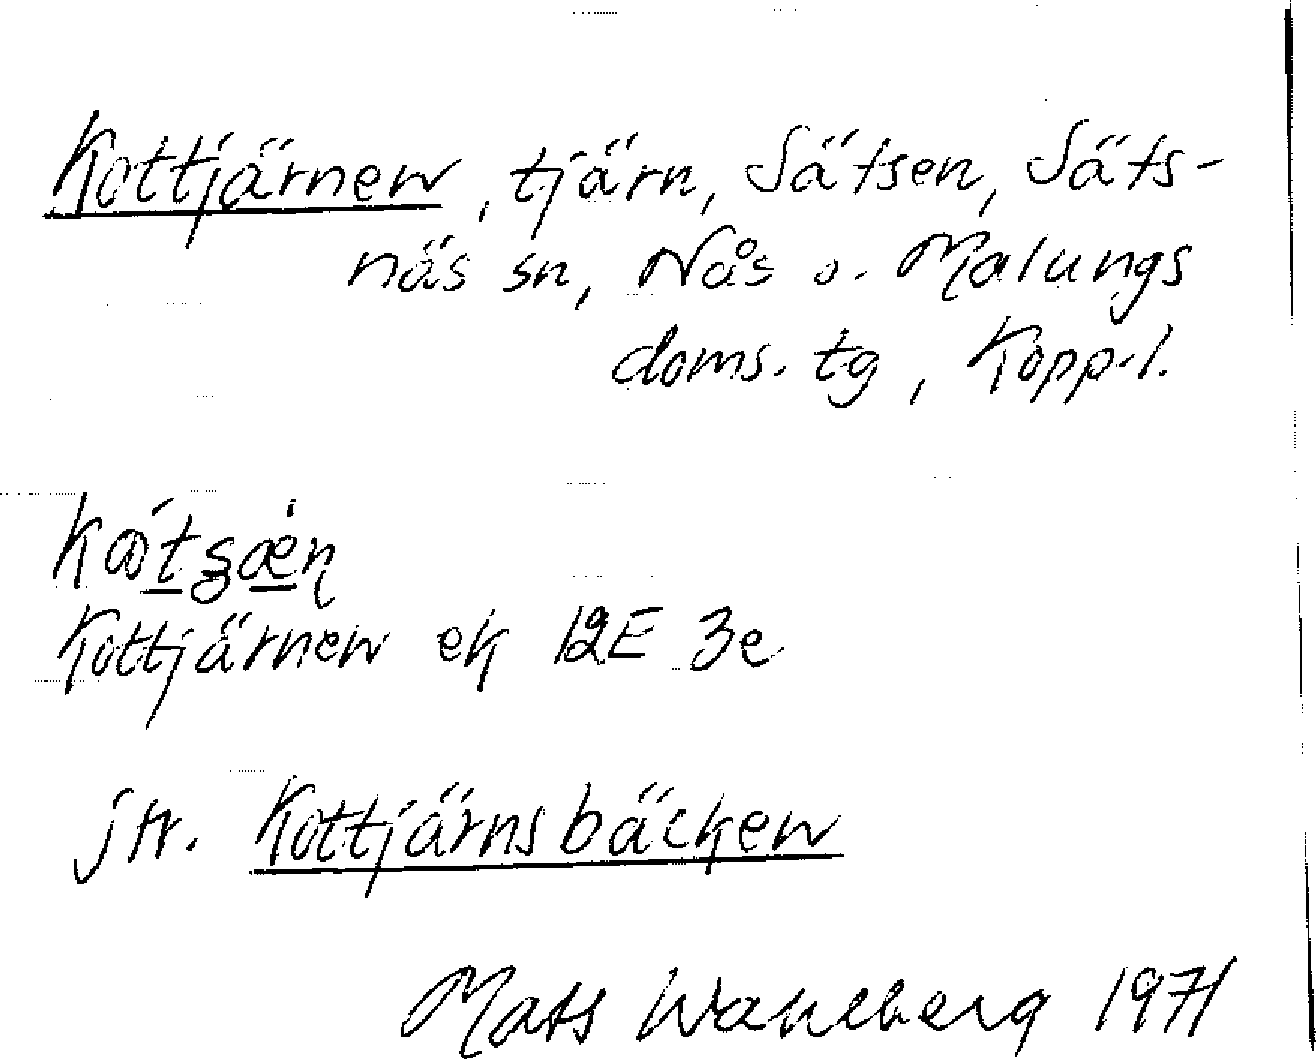 Kottjärnen, tjärn, Sätsen, Säts-
näs sn, Nås o. Malungs
doms. tg, Kopp. l.
Kottjärnen ek 12E 3e
jfr. Kottjärnsbäcken
Mats Wahlberg 1971